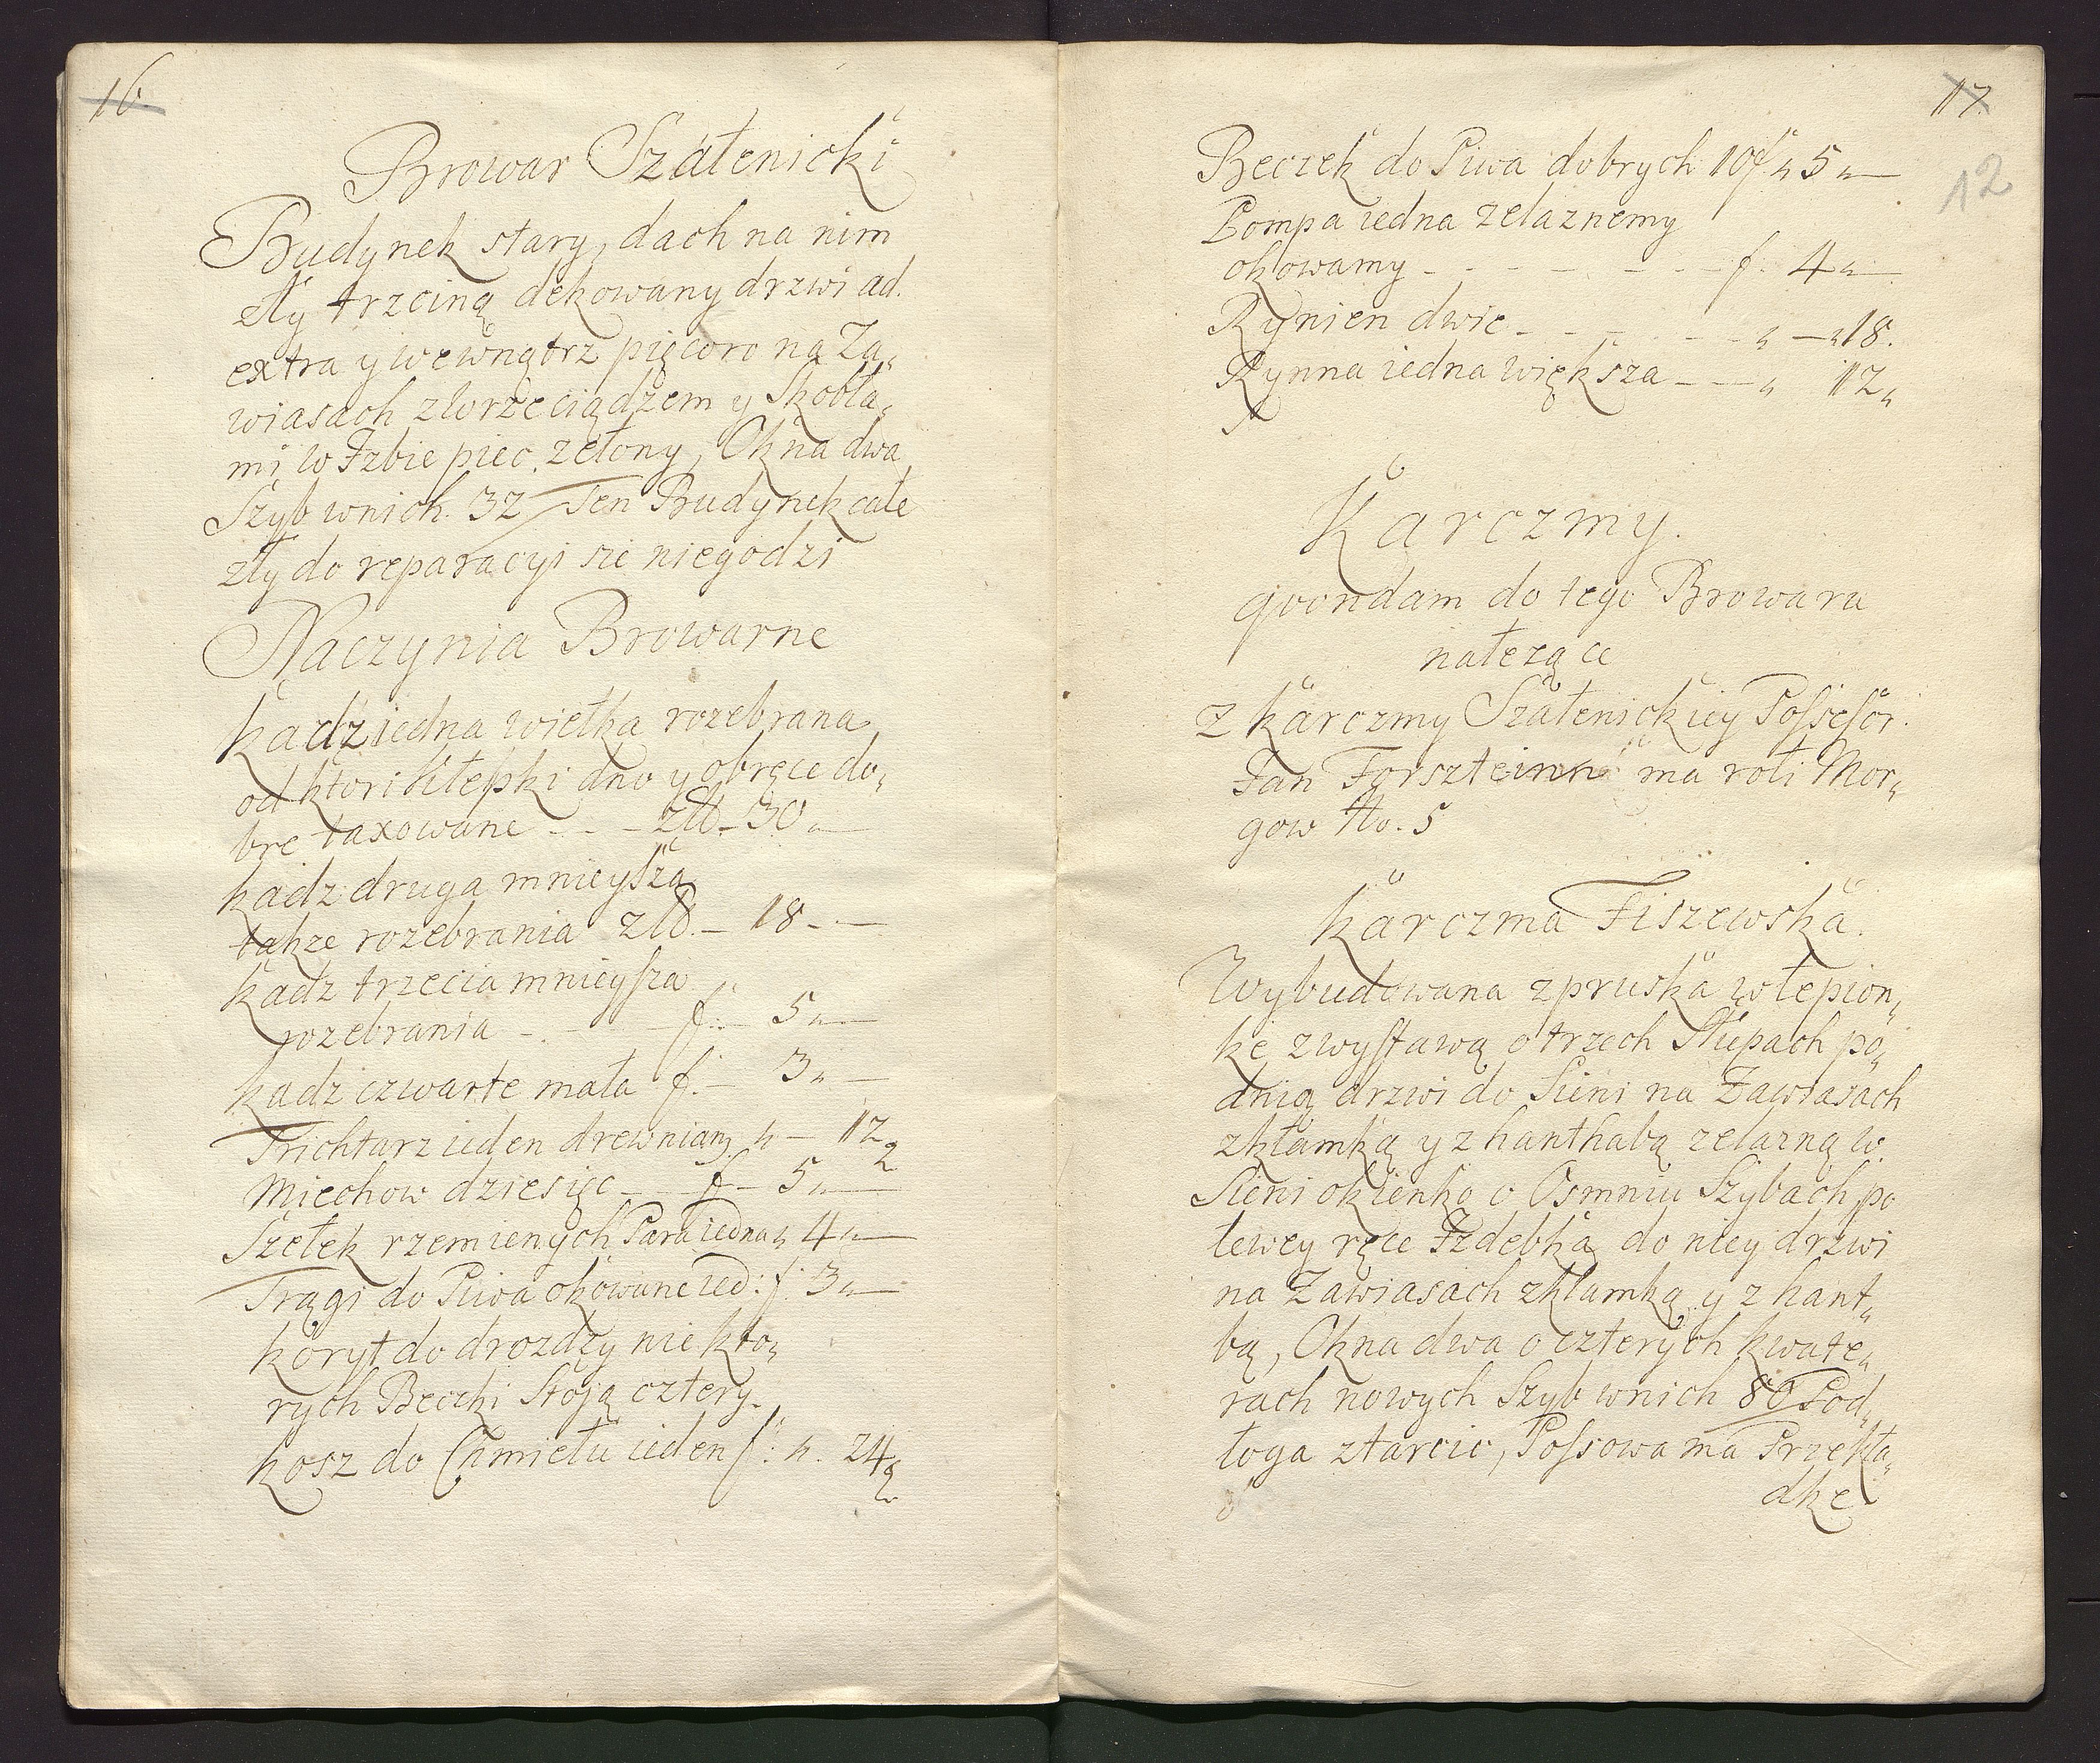 16.
Browar Szałenicki
Budynek stary, dach na nim
zły trzciną dekowany drzwi ad.
extra y wewnątrz pięcoro na Za„
wiasach zwrzeciądzem y Skobła„
mi w Izbie piec zełony, Okna dwa
Szyb wnich. 32 Ten Budynek całe
zły do reparacyi sie niegodzi
Naczynia Browarne
kadź iedna wiełka rozebrana
od ktori kłepki dno y obręce do„
bre taxowane - - - złł. 30 „—
kadz druga mnieysza
takze rozebrania złł. — 18. —
kadz trzecia mnieysza
rozebrania - . - — f: — 5 „—
kadz czwarte mała f. — 3 „ —
Trichtarz ieden drewniany „ — 12„
Miechow dziesięc — — f — 5 „—
Szełek rzemienych Para iedna „ 4 „—
Trągi do Piwa okowane ied: f: 3 „—
koryt do drozdzy nie kto„
rych Beczki Stoją cztery.
kosz do Chmiełu ieden f: „. 24„
17.
12
Beczek do Piwa dobrych 10 f „ 5 „—
Pompa iedna zelaznemy
okowamy - - - - - - - f. 4 „—
Rynien dwie - - - - - „ — „ 18.
Rynna iedna większa - — „ 12 „
Karczmy.
qvondam do tego Browaru
nałezące
z karczmy Szałenickiey Possessor.
Jan Forszteinn ma roli Mor„
gow No. 5
karczma Fiszewska.
Wybudowana zpruska włepion„
kę zwystawą o trzech Słupach po„
dnią drzwi do Sieni na Zawiasach
zkłamką y z hanthabą zelazną w.
Sieni okienko o Osmniu Szybach po
łewey ręce Izdebka do niey drzwi
na Zawiasach zkłamką y z hant„
bą, Okna dwa o czterych kwate„
rach nowych Szyb wnich 80 Pod„
łoga ztarcic, Possowa ma Przekła„
dkę